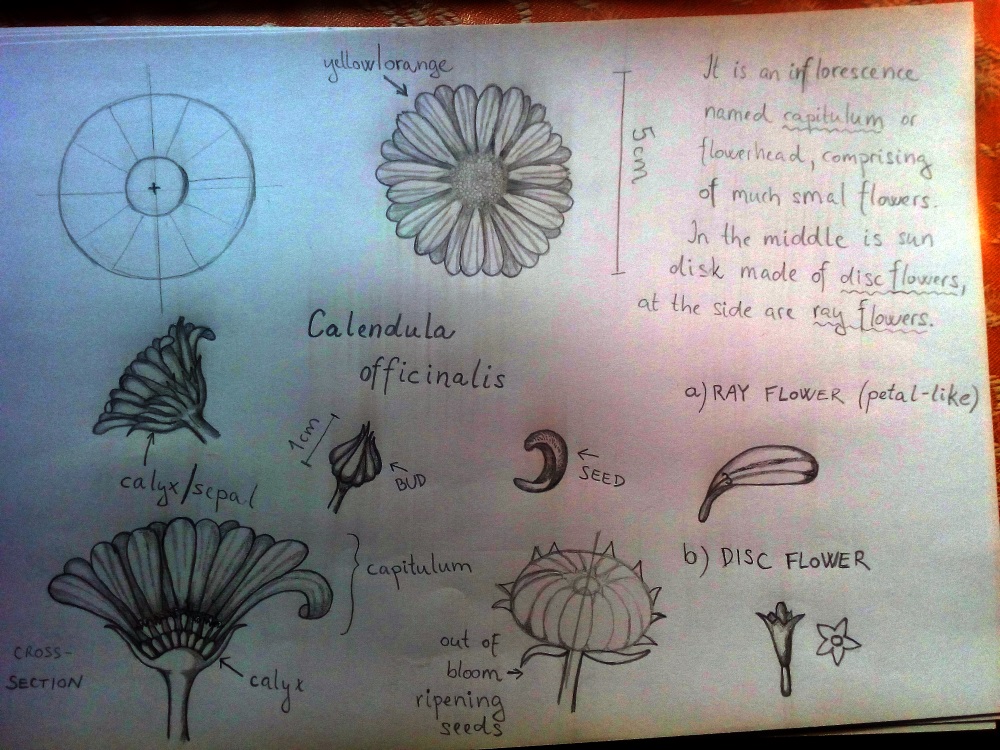 yellow/orange
5cm
It is an inflorescence
named capitulum or
flowerhead, comprising
of much smal flowers.
In the middle is sun
disk made of disc flowers,
at the side are ray flowers.
Calendula
officinalis
a) RAY FLOWER (petal-like)
calyx/sepal
1cm
BUD
SEED
b) DISC FLOWER
capitulum
CROSS-
SECTION
calyx
out of
bloom
ripening
seeds